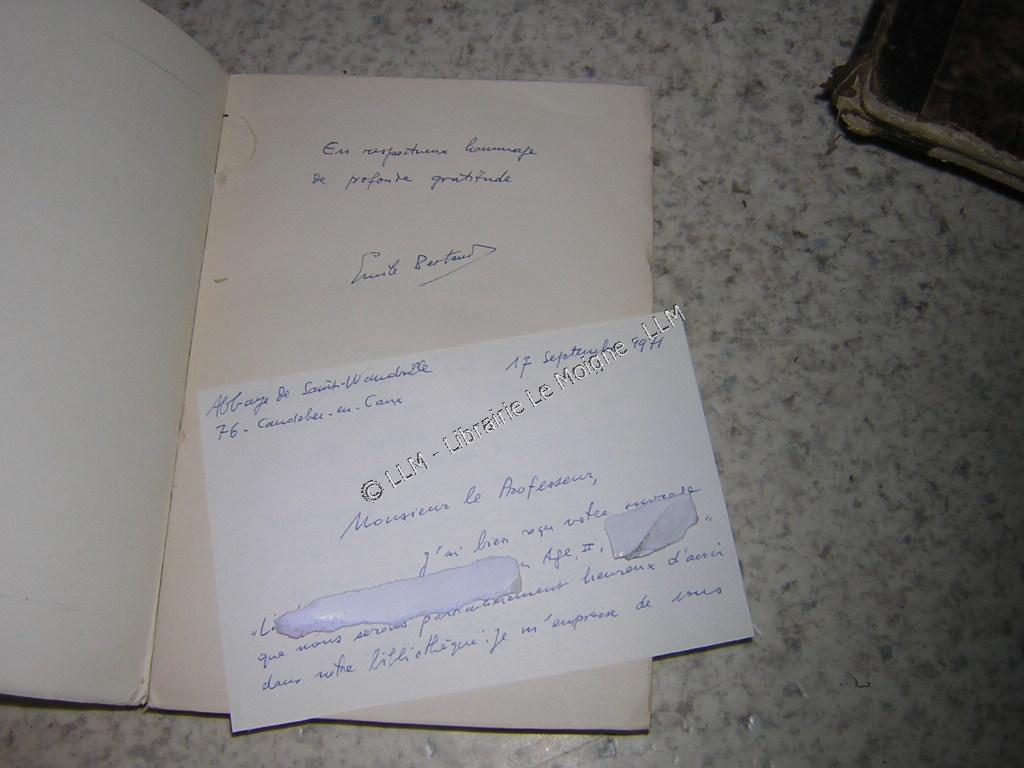 En respectueux hommage
de profonde gratitude
Emile Bertaud
Abbaye de Saint-Wandrille
76 - Caudebec-en-Caux
17 Septembre 1971
Monsieur le Professeur,
J'ai bien reçu votre ouvrage
Age, II, "
que nous serons particulièrement heureux d'avoir
dans notre bibliothèque : je m'empresse de vous
© LLM - Librairie Le Moigne - LLM